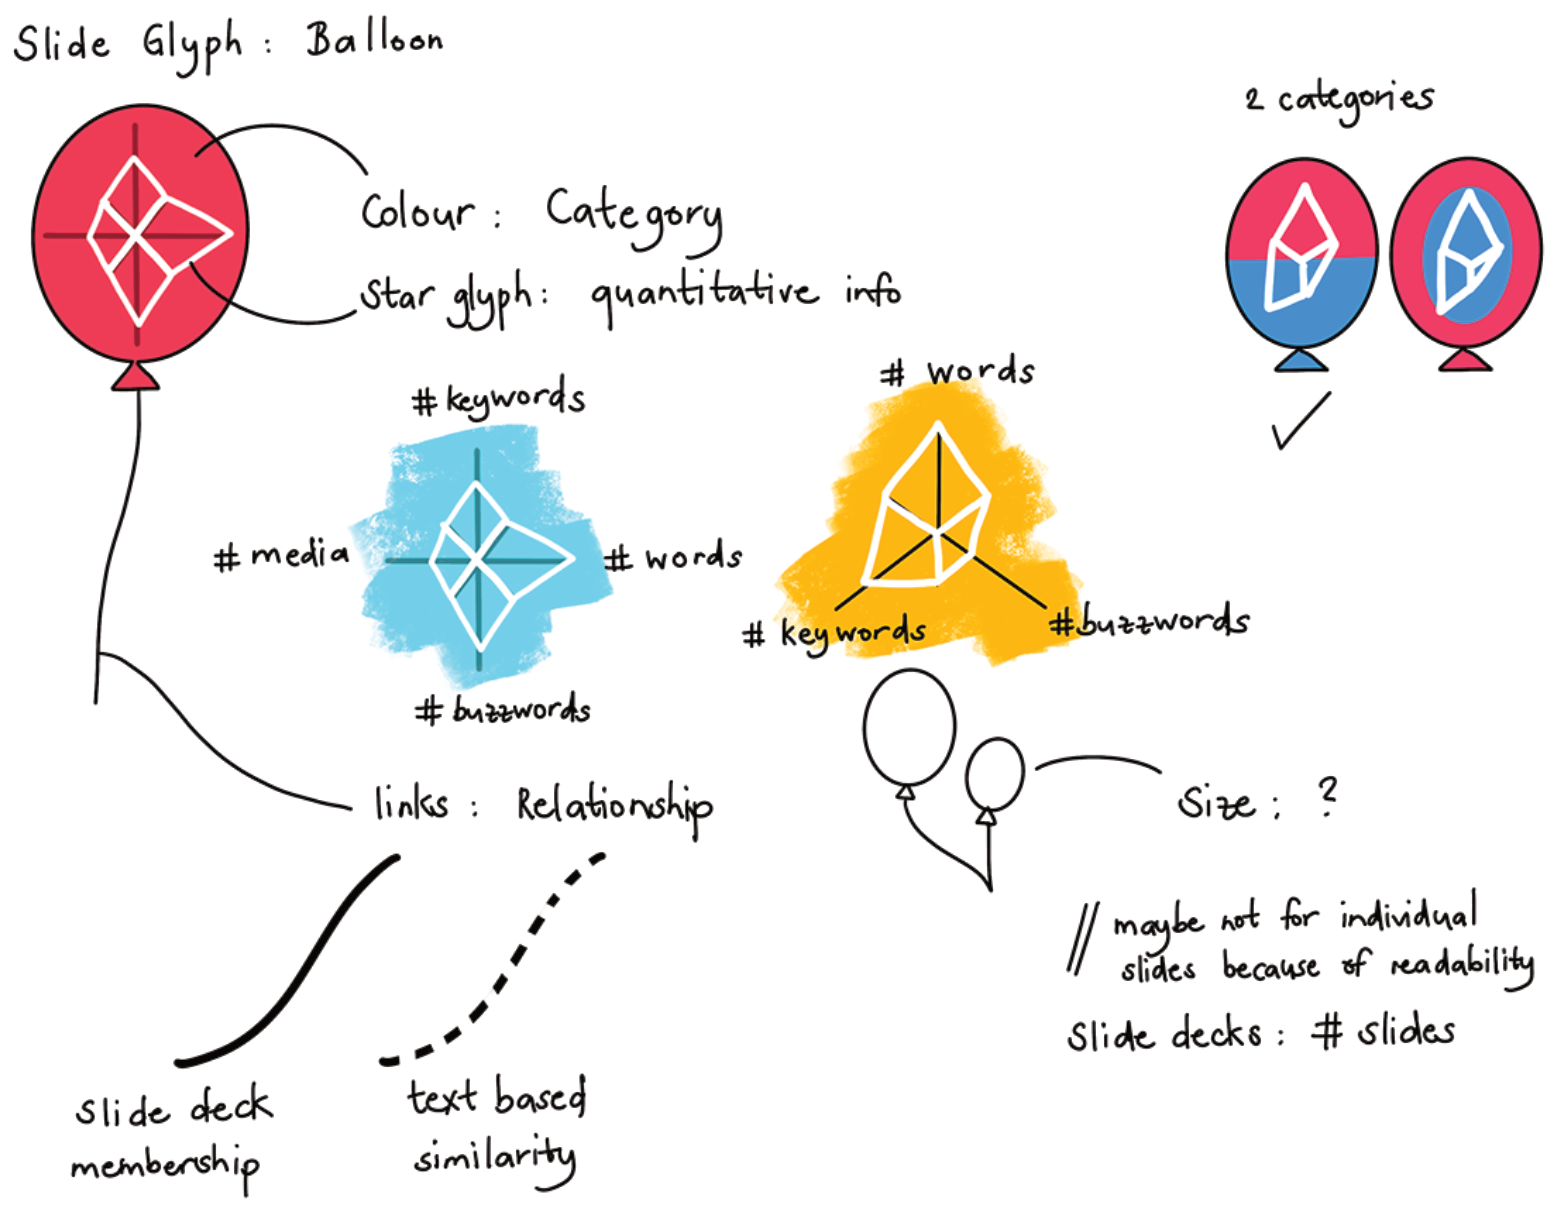 Slide Glyph : Balloon
2 categories
Colour : Category
Star glyph : quantitative info
# keywords
# media
# words
# buzzwords
# words
# keywords
# buzzwords
links : Relationship
Size : ?
// maybe not for individual
slides because of readability
Slide decks : # slides
slide deck
membership
text based
similarity